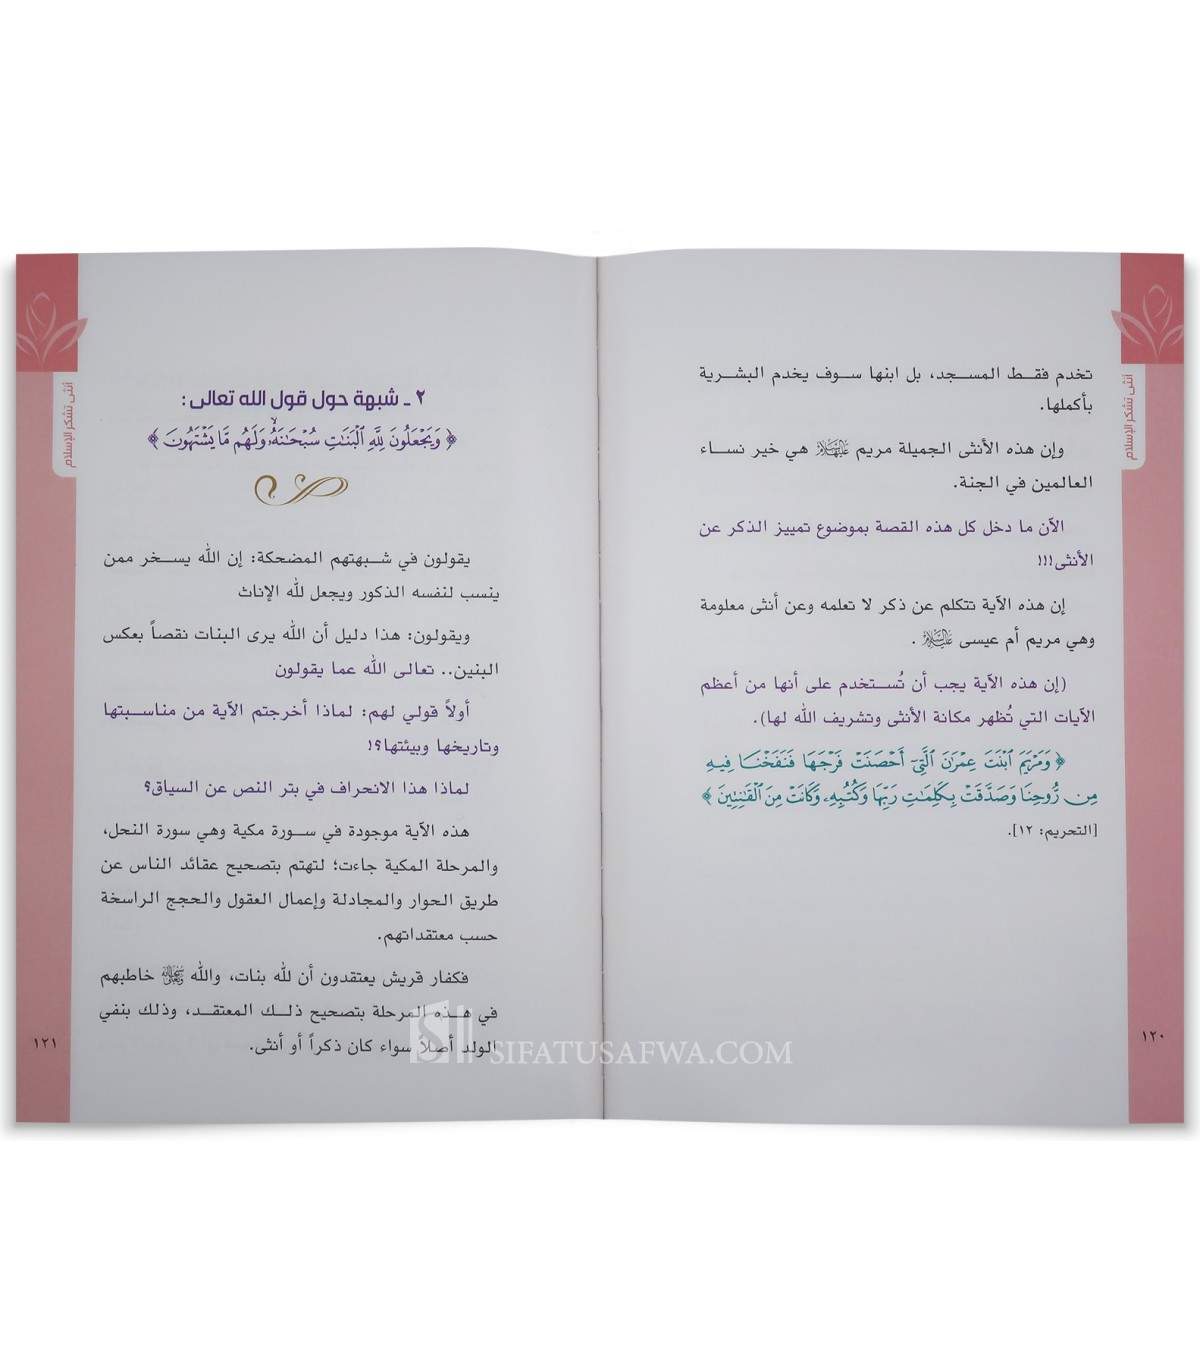 أنثى تشكر الإسلام
تخدم فقـط المسـجد، بل ابنها سـوف يخدم البشـرية
بأكملها.
وإن هذه الأنثى الجميلة مريم عليها السلام هي خير نسـاء
العالمين في الجنة.
الآن ما دخل كل هذه القصة بموضوع تمييز الذكر عن
الأنثى!!!
إن هذه الآية تتكلم عن ذكر لا تعلمه وعن أنثى معلومة
وهي مريم أم عيسى عليه السلام .
(إن هذه الآية يجب أن تُسـتخدم على أنها من أعظم
الآيات التي تُظهر مكانة الأنثى وتشريف الله لها).
﴿ وَمَرْيَمَ ٱبْنَتَ عِمْرَٰنَ ٱلَّتِىٓ أَحْصَنَتْ فَرْجَهَا فَنَفَخْنَا فِيهِ
مِن رُّوحِنَا وَصَدَّقَتْ بِكَلِمَٰتِ رَبِّهَا وَكُتُبِهِۦ وَكَانَتْ مِنَ ٱلْقَٰنِتِينَ ﴾
[التحريم: ١٢].
١٢٠
أنثى تشكر الإسلام
٢ ـ شبهة حول قول الله تعالى :
﴿ وَيَجْعَلُونَ لِلَّهِ ٱلْبَنَٰتِ سُبْحَٰنَهُۥ ۙ وَلَهُم مَّا يَشْتَهُونَ ﴾
يقولون في شـبهتهم المضحكة: إن الله يسـخر ممن
ينسب لنفسه الذكور ويجعل لله الإناث
ويقولون: هذا دليل أن الله يرى البنات نقصاً بعكس
البنين.. تعالى الله عما يقولون
أولاً قولي لهم: لماذا أخرجتم الآية من مناسـبتها
وتاريخها وبيئتها؟!
لماذا هذا الانحراف في بتر النص عن السياق؟
هذه الآية موجودة في سـورة مكية وهي سورة النحل،
والمرحلة المكية جاءت؛ لتهتم بتصحيح عقائد الناس عن
طريق الحوار والمجادلة وإعمال العقول والحجج الراسخة
حسب معتقداتهم.
فكفار قريش يعتقدون أن لله بنات، والله سبحانه وتعالى خاطبهم
في هـذه المرحلة بتصحيح ذلـك المعتقـد، وذلك بنفي
الولد أصلاً سواء كان ذكراً أو أنثى.
١٢١
SIFATUSAFWA.COM